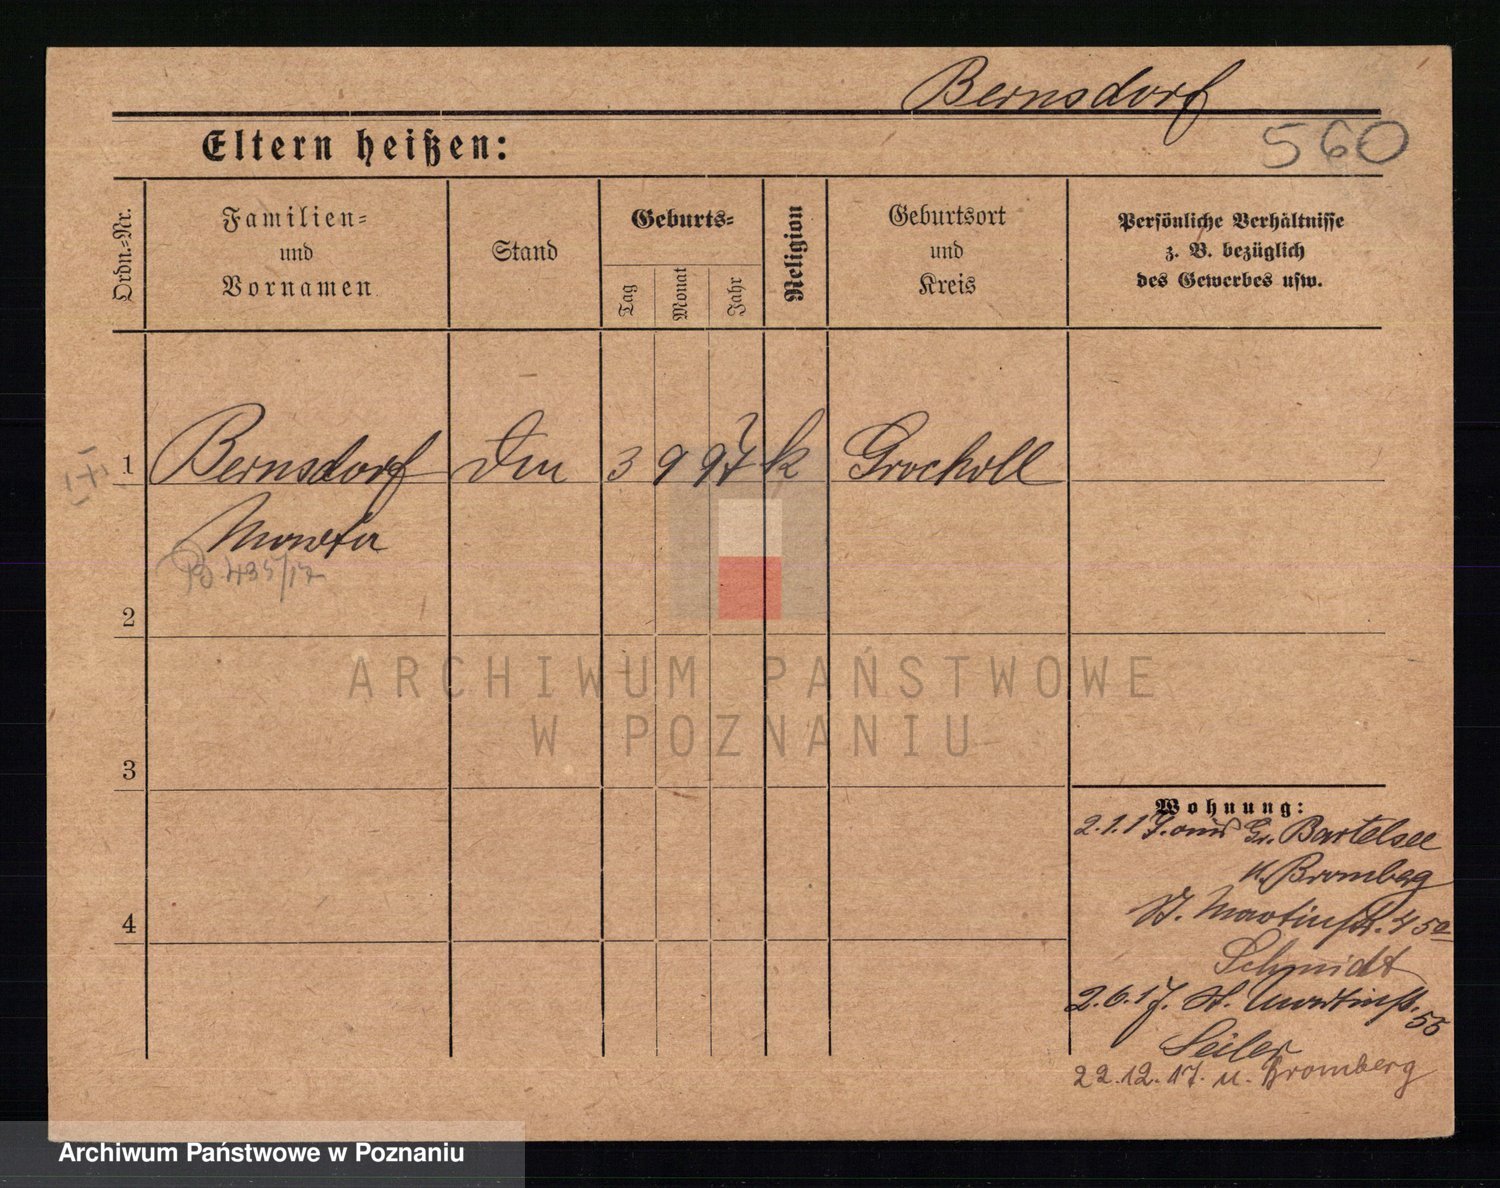 Bernsdorf
Eltern heißen:
560
Ordn.-Nr.
Familien-
und
Vornamen
Stand
Geburts-
Tag
Monat
Jahr
Religion
Geburtsort
und
Kreis
Persönliche Verhältnisse
z. B. bezüglich
des Gewerbes usw.
1 Bernsdorf 3 9 97 k Grocholl
Martha
435/17
2
ARCHIWUM PAŃSTWOWE
W POZNANIU
3
4
Wohnung:
2.1.17. aus Gr. Bartelsee
Bromberg
St. Martinstr.
Schmidt
2.6.17. St. Martinstr. 55
Seiler
22.12.17. n. Bromberg
Archiwum Państwowe w Poznaniu